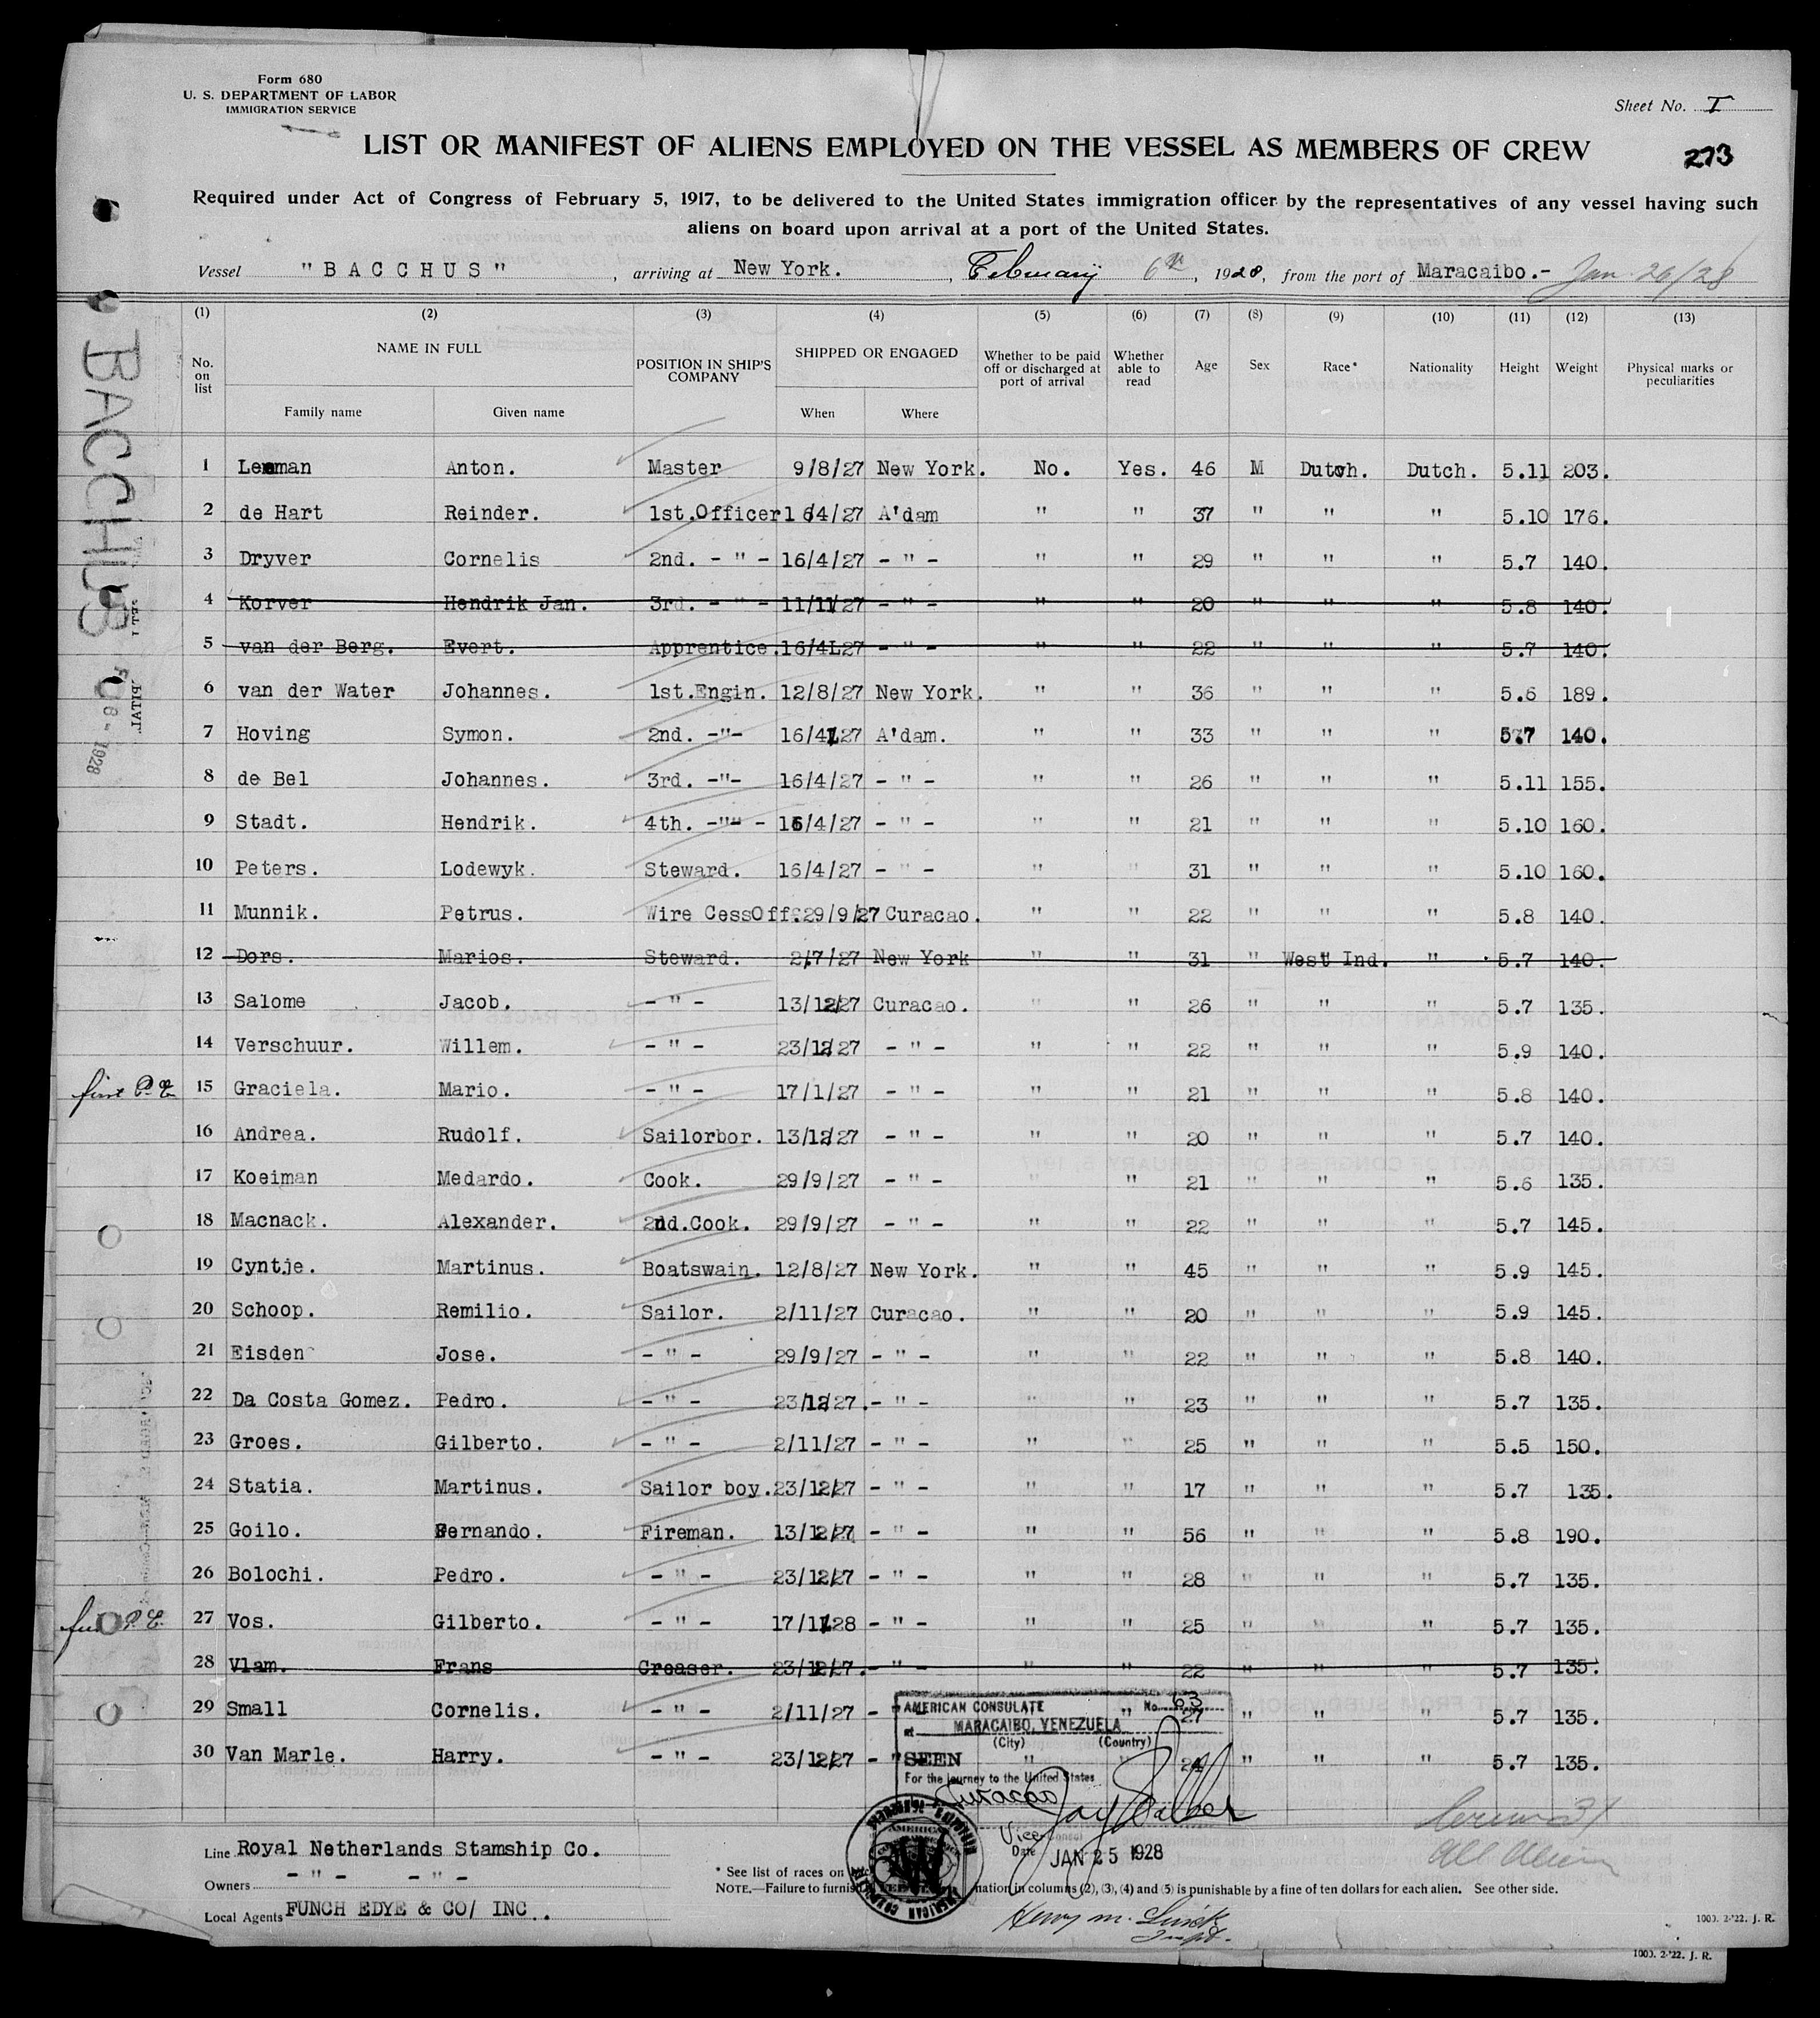 Form 680
U. S. DEPARTMENT OF LABOR
IMMIGRATION SERVICE
Sheet No. I
LIST OR MANIFEST OF ALIENS EMPLOYED ON THE VESSEL AS MEMBERS OF CREW
273
Required under Act of Congress of February 5, 1917, to be delivered to the United States immigration officer by the representatives of any vessel having such
aliens on board upon arrival at a port of the United States.
Vessel "BACCHUS", arriving at New York., February 6th, 1928, from the port of Maracaibo.-
(1) (2) (3) (4) (5) (6) (7) (8) (9) (10) (11) (12) (13)
No. on list NAME IN FULL POSITION IN SHIP'S COMPANY SHIPPED OR ENGAGED Whether to be paid off or discharged at port of arrival Whether able to read Age Sex Race* Nationality Height Weight Physical marks or peculiarities
Family name Given name When Where
BACCHUS
1 Leeman Anton. Master 9/8/27 New York. No. Yes. 46 M Dutch. Dutch. 5.11 203.
2 de Hart Reinder. 1st.Officer 16/4/27 A'dam " " 37 " " " 5.10 176.
3 Dryver Cornelis 2nd. - " - 16/4/27 - " - " " 29 " " " 5.7 140.
4 Korver Hendrik Jan. 3rd. - " - 11/11/27 - " - " " 20 " " " 5.8 140.
5 van der Berg. Evert. Apprentice. 16/4/27 - " - " " 22 " " " 5.7 140.
6 van der Water Johannes. 1st.Engin. 12/8/27 New York. " " 36 " " " 5.6 189.
7 Hoving Symon. 2nd. -"- 16/4/27 A'dam. " " 33 " " " 5.7 140.
8 de Bel Johannes. 3rd. -"- 16/4/27 - " - " " 26 " " " 5.11 155.
9 Stadt. Hendrik. 4th. -"- - 16/4/27 - " - " " 21 " " " 5.10 160.
10 Peters. Lodewyk. Steward. 16/4/27 - " - " " 31 " " " 5.10 160.
11 Munnik. Petrus. Wire CessOff. 29/9/27 Curacao. " " 22 " " " 5.8 140.
12 Dors. Marios. Steward. 2/7/27 New York " " 31 " West Ind. " 5.7 140.
13 Salome Jacob. - " - 13/12/27 Curacao. " " 26 " " " 5.7 135.
14 Verschuur. Willem. - " - 23/12/27 - " - " " 22 " " " 5.9 140.
first P.E. 15 Graciela. Mario. - " - 17/1/27 - " - " " 21 " " " 5.8 140.
16 Andrea. Rudolf. Sailorbor. 13/12/27 - " - " " 20 " " " 5.7 140.
17 Koeiman Medardo. Cook. 29/9/27 - " - " " 21 " " " 5.6 135.
18 Macnack. Alexander. 2nd.Cook. 29/9/27 - " - " " 22 " " " 5.7 145.
19 Cyntje. Martinus. Boatswain. 12/8/27 New York. " " 45 " " " 5.9 145.
20 Schoop. Remilio. Sailor. 2/11/27 Curacao. " " 20 " " " 5.9 145.
21 Eisden Jose. - " - 29/9/27 - " - " " 22 " " " 5.8 140.
22 Da Costa Gomez. Pedro. - " - 23/12/27. - " - " " 23 " " " 5.7 135.
23 Groes. Gilberto. - " - 2/11/27 - " - " " 25 " " " 5.5 150.
24 Statia. Martinus. Sailor boy. 23/12/27 - " - " " 17 " " " 5.7 135.
25 Goilo. Fernando. Fireman. 13/12/27 - " - " " 56 " " " 5.8 190.
26 Bolochi. Pedro. - " - 23/12/27 - " - " " 28 " " " 5.7 135.
27 Vos. Gilberto. - " - 17/1/28 - " - " " 25 " " " 5.7 135.
28 Vlam. Frans Greaser. 23/12/27. - " - " " 22 " " " 5.7 135.
29 Small Cornelis. - " - 2/11/27 - " 27 " " " 5.7 135.
30 Van Marle. Harry. - " - 23/12/27 - " " " 24 " " " 5.7 135.
AMERICAN CONSULATE No. 63
at MARACAIBO, VENEZUELA
(City) (Country)
SEEN
For the journey to the United States
Curacao
Vice Consul
Date JAN 25 1928
Line Royal Netherlands Stamship Co.
Owners - " - - " -
Local Agents FUNCH EDYE & CO/ INC..
* See list of races on
NOTE.—Failure to furnish nation in columns (2), (3), (4) and (5) is punishable by a fine of ten dollars for each alien. See other side.
1000. 2-'22. J. R.
1000. 2-'22. J. R.